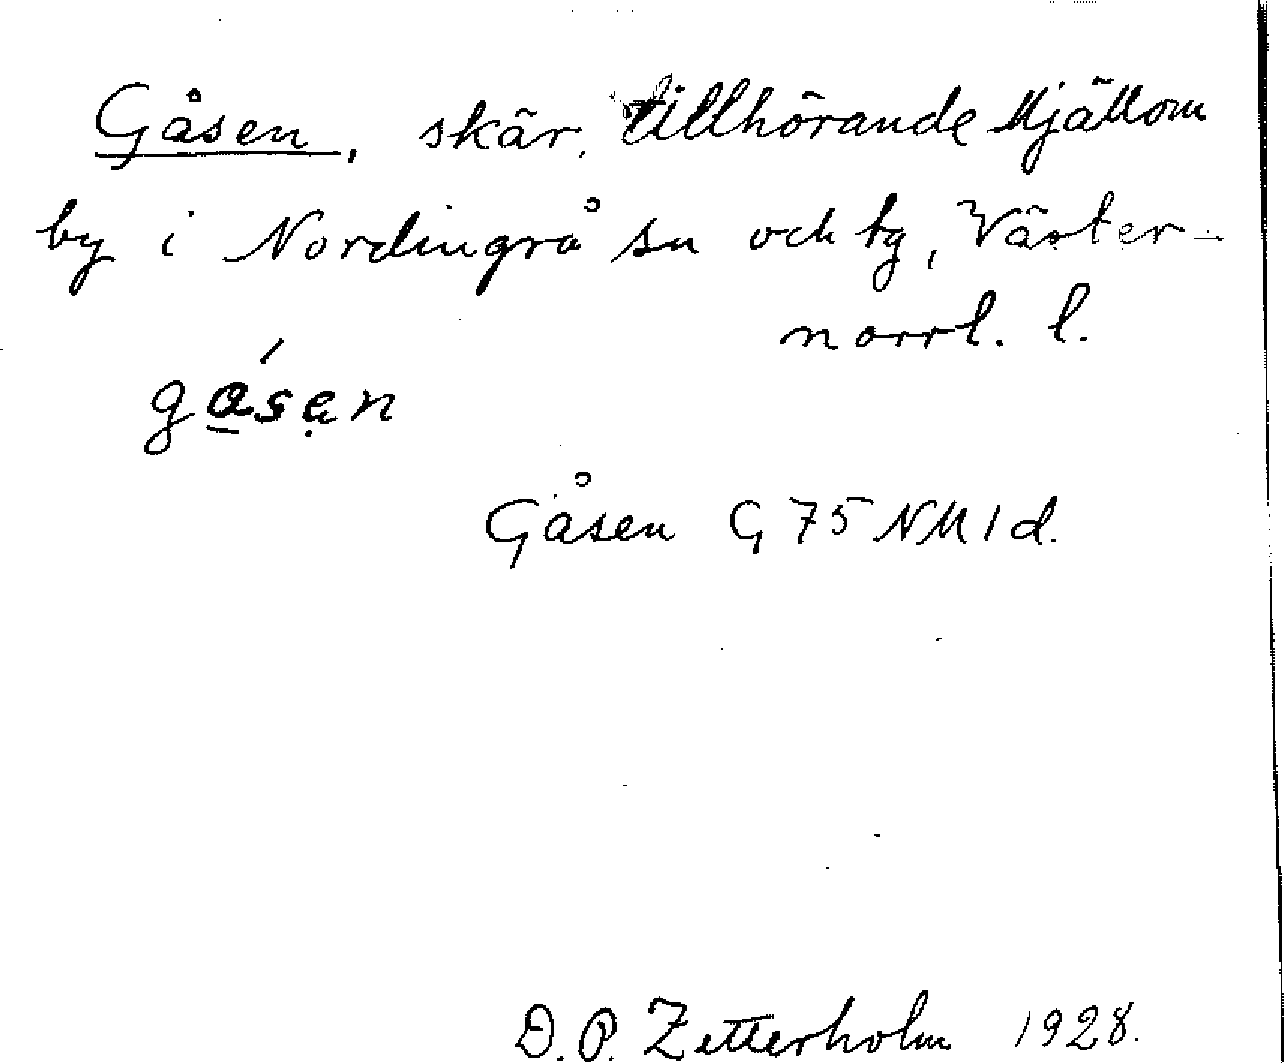 Gåsen, skär, tillhörande Mjällom
by i Nordingrå sn och tg, Väster-
norrl. l.
gásen
Gåsen G 75 NM 1 d.
D. O. Zetterholm 1928.